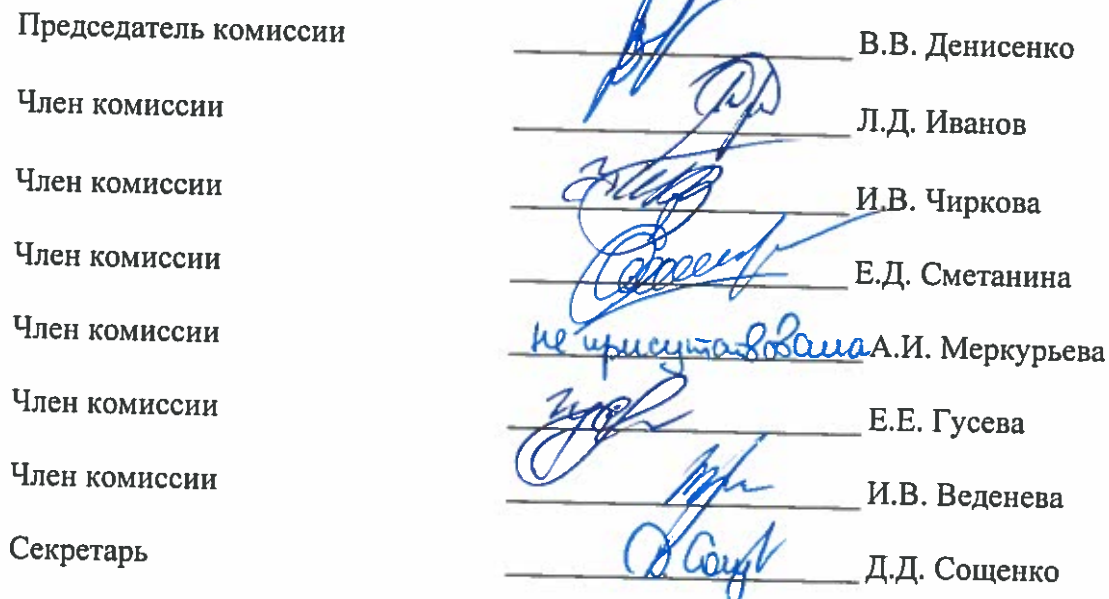 Председатель комиссии В.В. Денисенко
Член комиссии Л.Д. Иванов
Член комиссии И.В. Чиркова
Член комиссии Е.Д. Сметанина
Член комиссии не присутствовала А.И. Меркурьева
Член комиссии Е.Е. Гусева
Член комиссии И.В. Веденева
Секретарь Д.Д. Сощенко